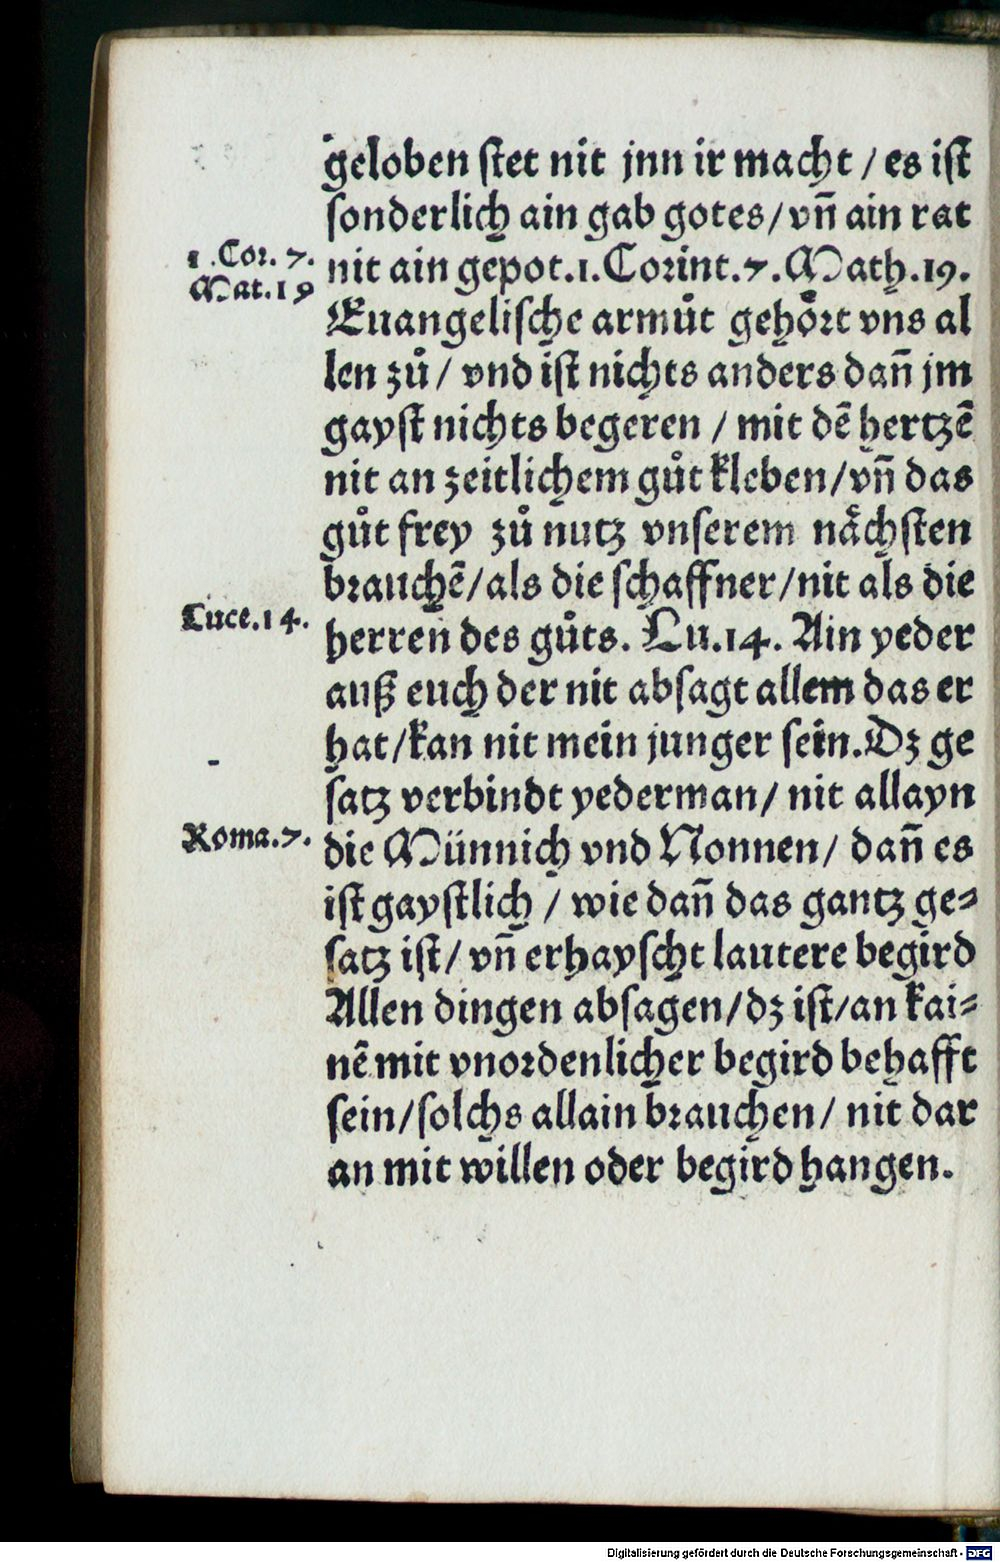 geloben ſtet nit jnn ir macht / es iſt
ſonderlich ain gab gotes / vñ ain rat
1 . Cor. 7.
nit ain gepot.1.Corint.7.Math.19.
Mat.19
Euangeliſche armůt gehoͤrt vns al
len zů / vnd iſt nichts anders dañ jm
gayſt nichts begeren / mit dē hertzē
nit an zeitlichem gůt kleben/vñ das
gůt frey zů nutz vnſerem naͤchſten
brauchē/als die ſchaffner/nit als die
Luce.14.
herren des gůts. Lu.14. Ain yeder
auß euch der nit abſagt allem das er
hat/kan nit mein junger ſein.Dz ge
ſatz verbindt yederman/ nit allayn
Roma.7.
die Münnich vnd Nonnen/ dañ es
iſt gayſtlich / wie dañ das gantz ge⸗
ſatz iſt/ vñ erhayſcht lautere begird
Allen dingen abſagen/dz iſt/an kai⸗
nē mit vnordenlicher begird behafft
ſein/ſolchs allain brauchen/ nit dar
an mit willen oder begird hangen.
Digitalisierung gefördert durch die Deutsche Forschungsgemeinschaft - DFG